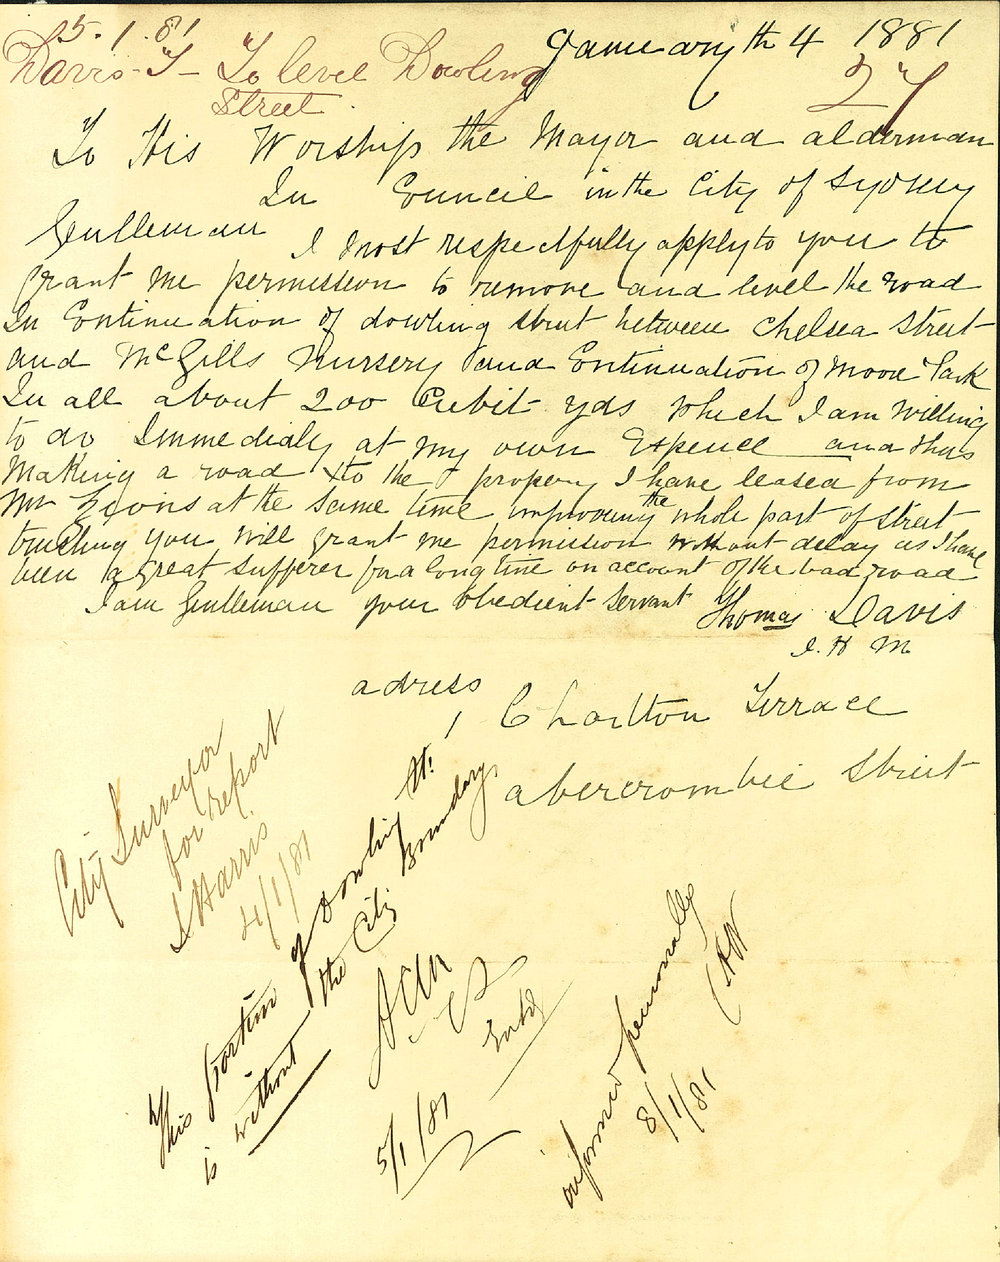 5.1.81
Davis - T - To level Dowling
Street
January th 4 1881
27
To His Worship the Mayor and alderman
In Council in the City of Sydney
Gentleman
I most respectfully apply to you to
grant me permission to remove and level the road
In Continuation of dowling street between Chelsea Street
and McGills Nursery and Continuation of Moore Park
In all about 200 Cubit yds which I am willing
to do Immedialy at my own Expence and thus
Making a road to the propery I have leased from
Mr Lyons at the same time improveing the whole part of street
trusting you will grant me permission without delay as I have
been a great sufferer for a long time on account of the bad road
I am Gentleman your obedient Servant Thomas Davis
I. H M
adress
1 Charlton Terrace
abercrombie Street
City Surveyor
for report
Harris
4/1/81
This portion of Dowling St:
is without the City Boundary
CS
5/1/81
informed personally
8/1/81